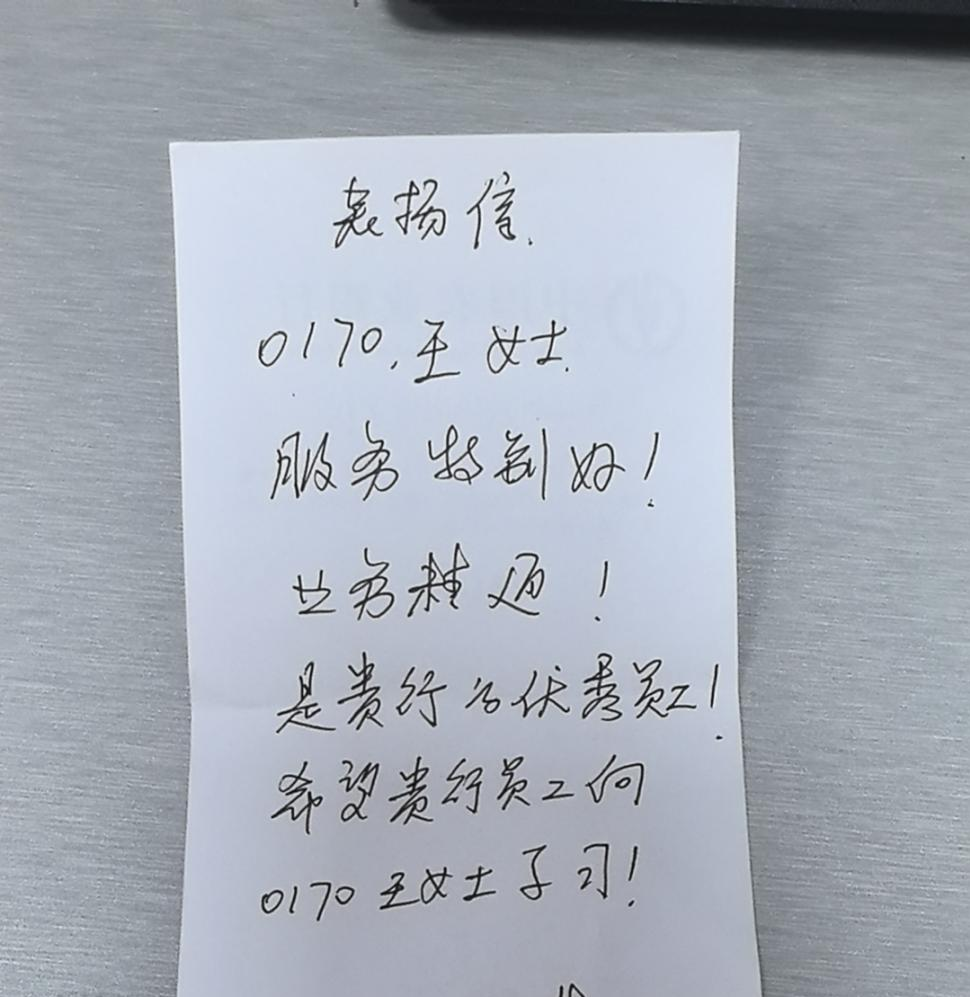 表扬信.
0170.王女士.
服务特别好!
业务精通!
是贵行的优秀员工!
希望贵行员工向
0170王女士学习!